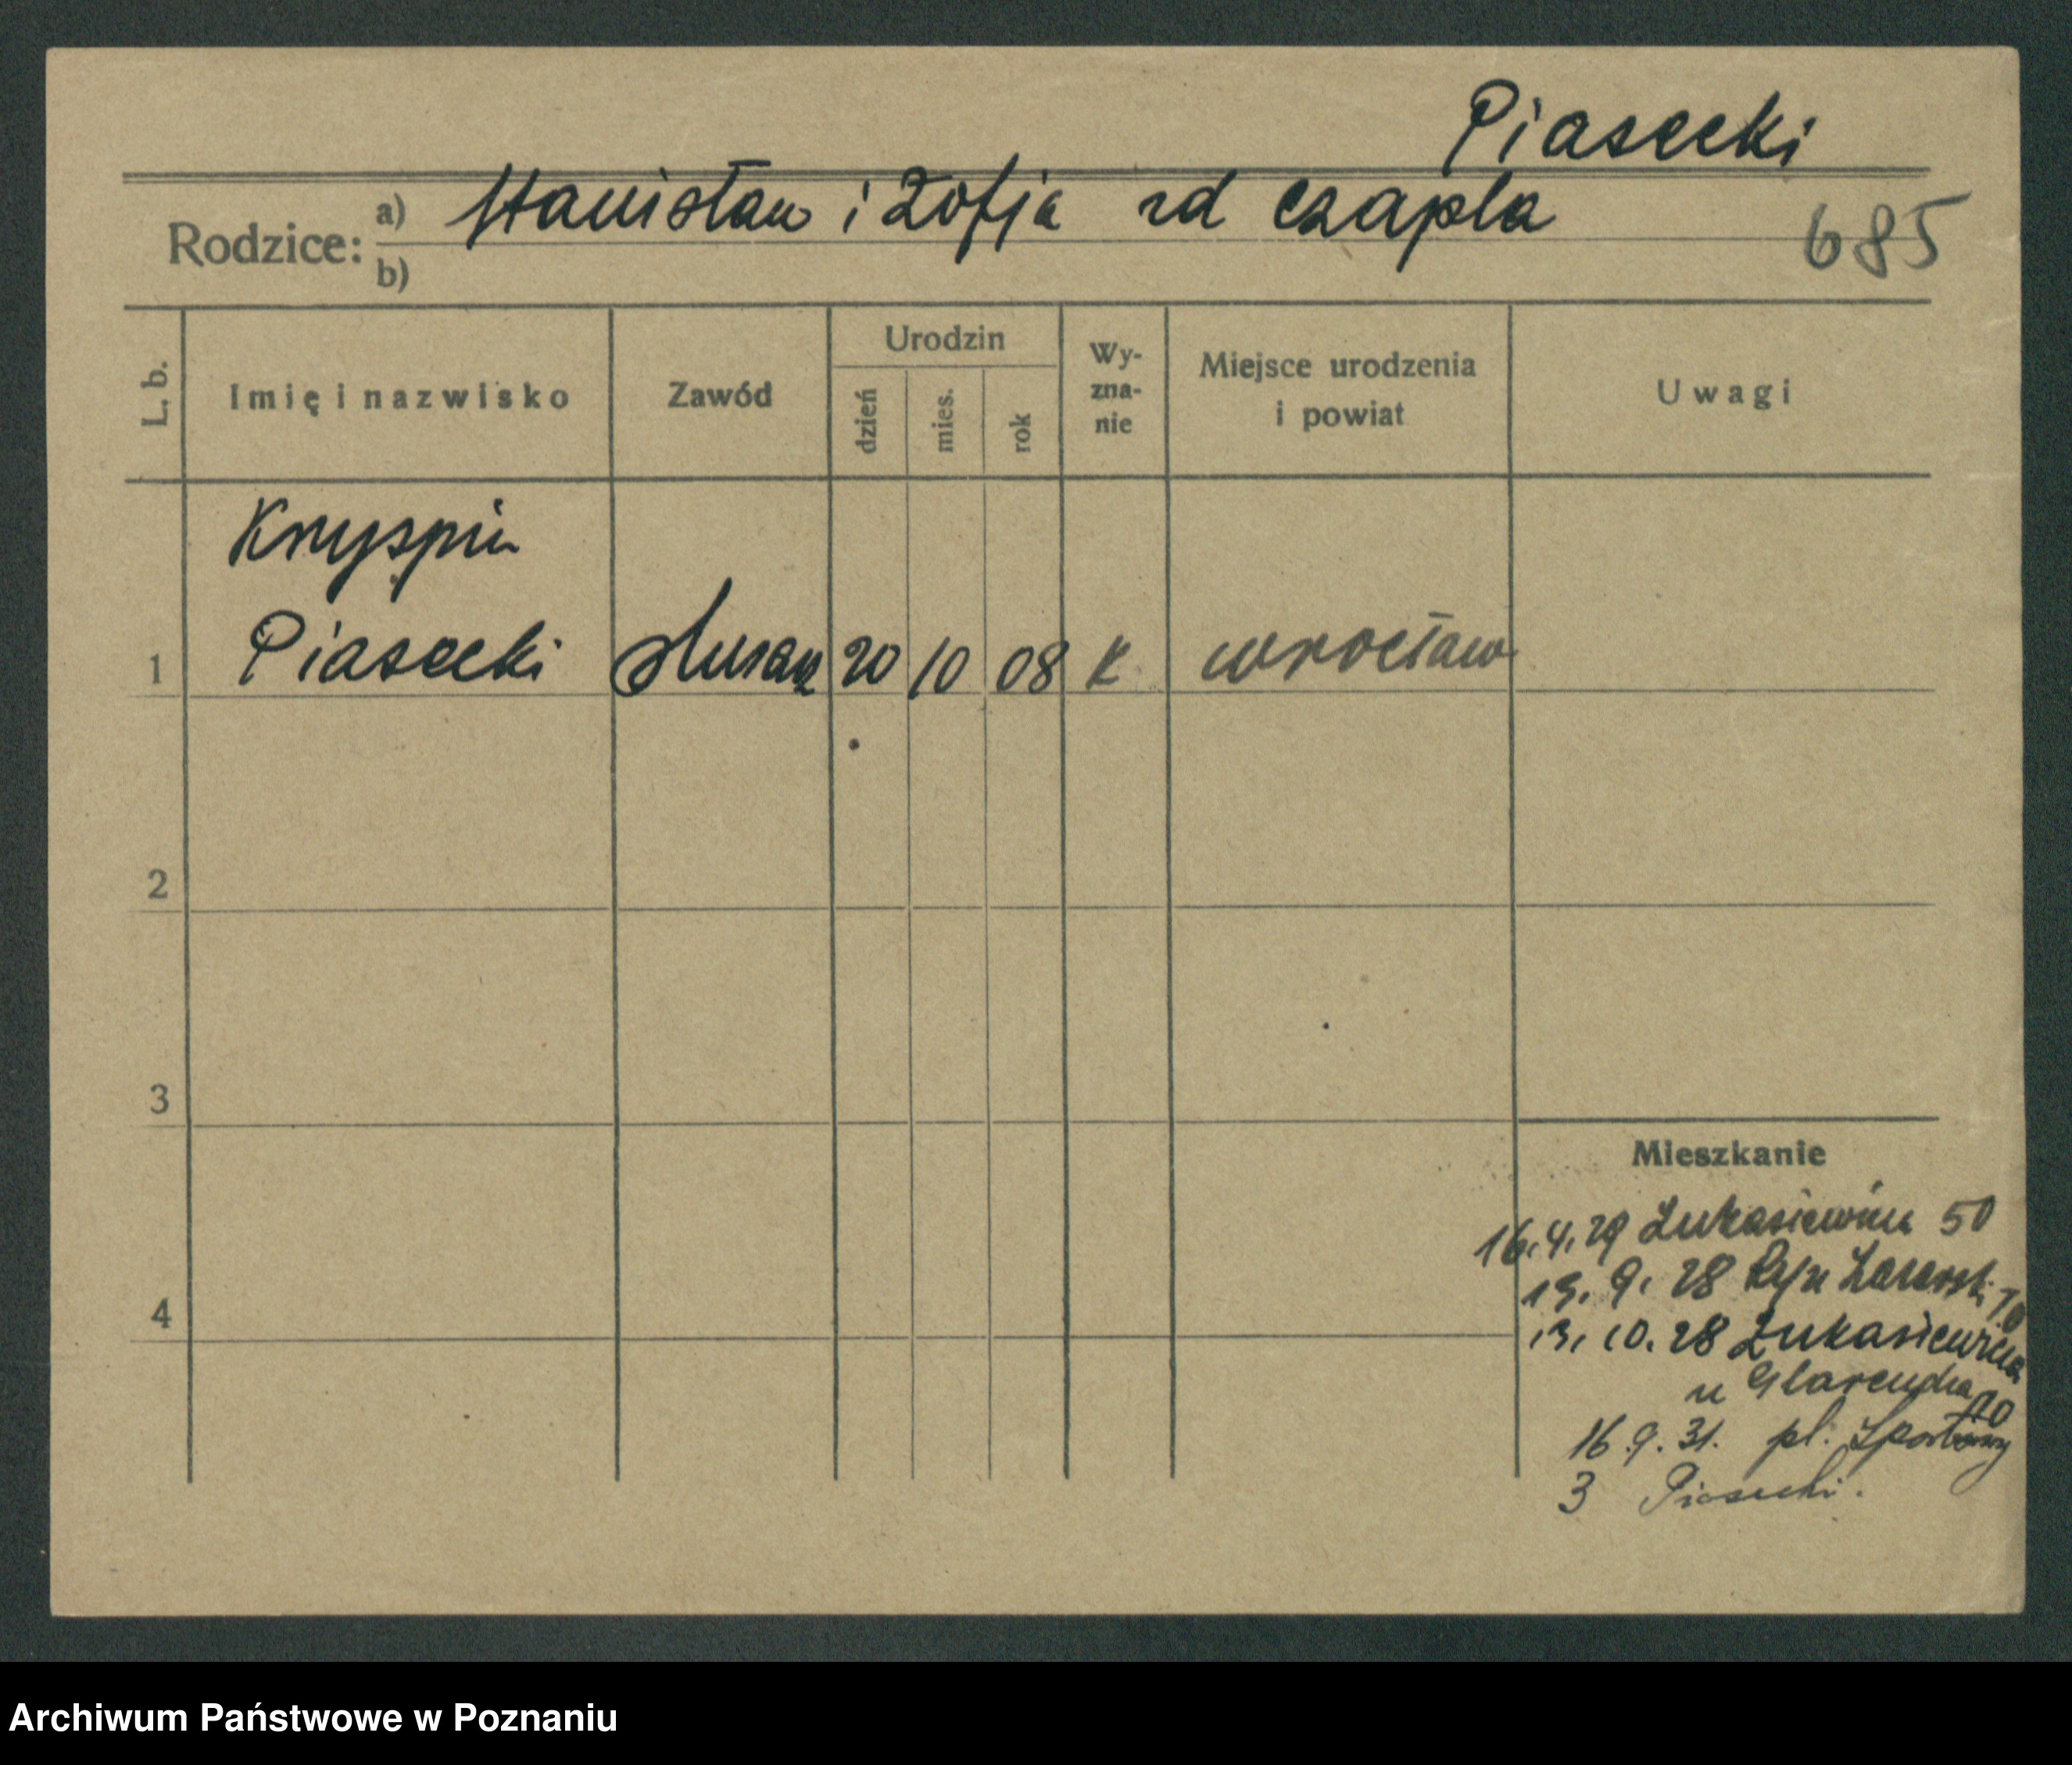 Piasecki
Rodzice: a) Stanisław i Zofja rd Czapla
b)
685
L. b. Imię i nazwisko Zawód Urodzin dzień mies. rok Wy-zna-nie Miejsce urodzenia i powiat Uwagi
Kryspin
1 Piasecki ślusarz 20 10 08 K Wrocław
2
3
Mieszkanie
16.4.29 Łukasiewicza 50
13. 9. 28 Ryn. Łazarski 10
4
13. 10. 28 Łukasiewicza
u 20
16.9.31. pl. Sportowy
3 Piasecki.
Archiwum Państwowe w Poznaniu